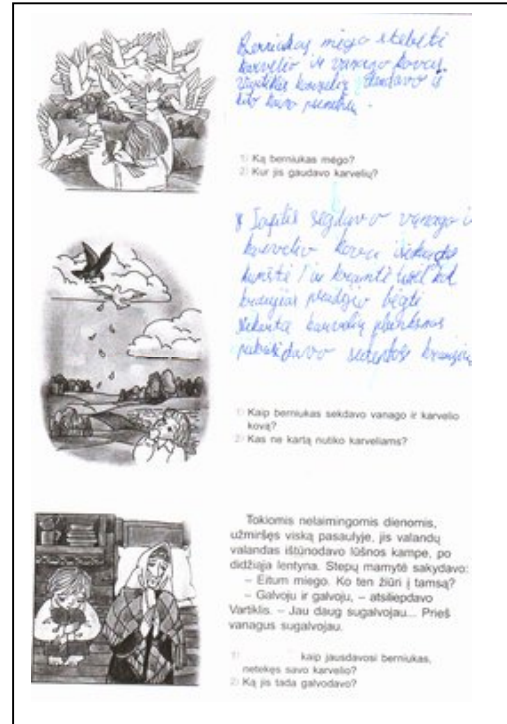 Berniukas mėgo stebėti
karvelio ir vanago kovas
karvelių gaudavo iš
kito kaimo piemenų.
1) Ką berniukas mėgo?
2) Kur jis gaudavo karvelių?
vanago ir
karvelio kovą
kol
kraujas pradėjo bėgti
karvelių plunksnos
1) Kaip berniukas sekdavo vanago ir karvelio
kovą?
2) Kas ne kartą nutiko karveliams?
Tokiomis nelaimingomis dienomis,
užmiršęs viską pasaulyje, jis valandų
valandas ištūnodavo lūšnos kampe, po
didžiąja lentyna. Stepų mamytė sakydavo:
– Eitum miego. Ko ten žiūri į tamsą?
– Galvoju ir galvoju, – atsiliepdavo
Vartiklis. – Jau daug sugalvojau... Prieš
vanagus sugalvojau.
1) kaip jausdavosi berniukas,
netekęs savo karvelio?
2) Ką jis tada galvodavo?